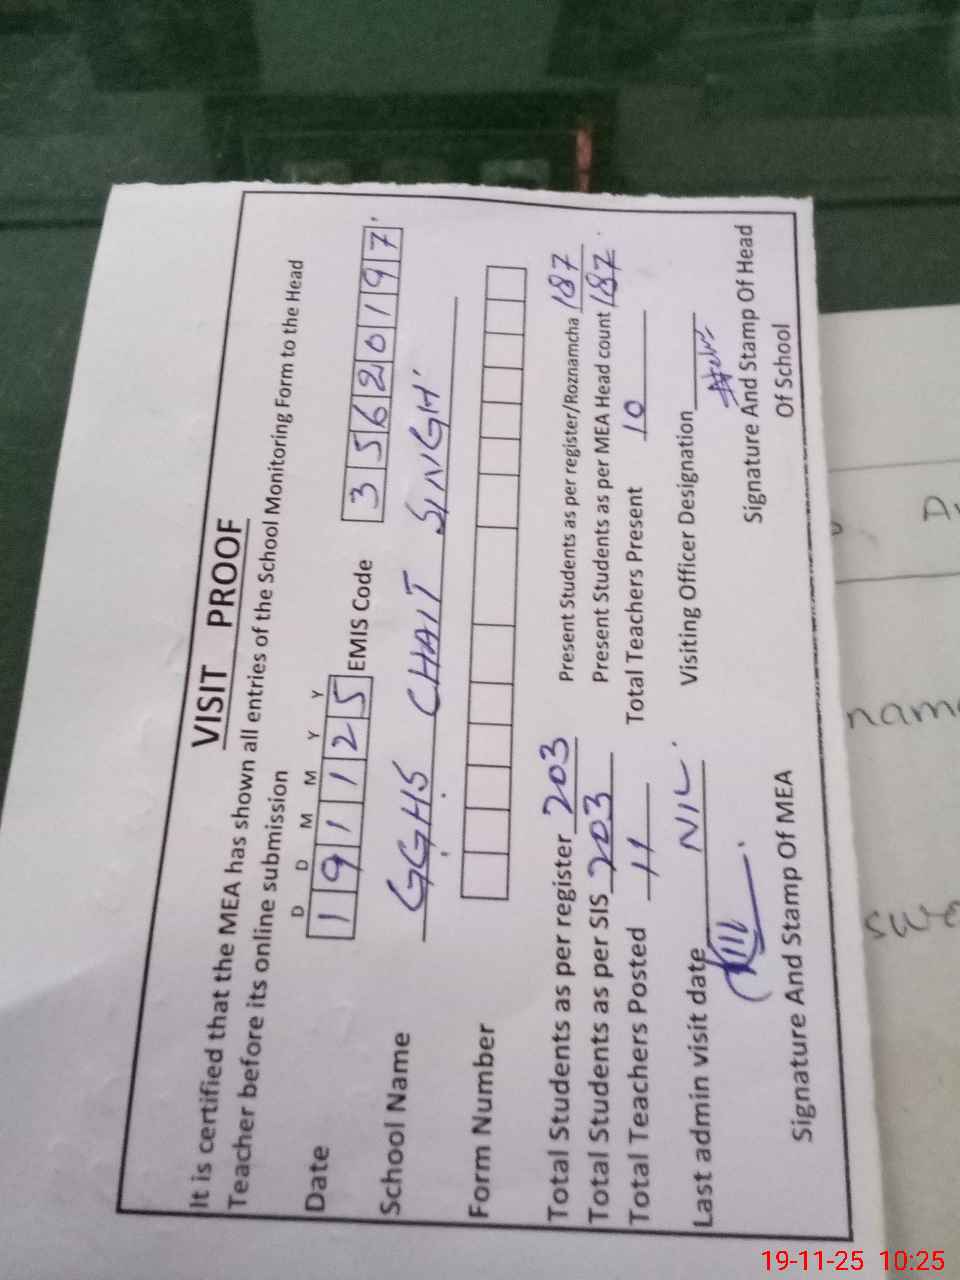 VISIT PROOF
It is certified that the MEA has shown all entries of the School Monitoring Form to the Head
Teacher before its online submission
D D M M Y Y
Date 191125 EMIS Code 35620197
School Name GGHS CHAIT SINGH
Form Number
Total Students as per register 203 Present Students as per register/Roznamcha 187
Total Students as per SIS 203 Present Students as per MEA Head count 187
Total Teachers Posted 11 Total Teachers Present 10
Last admin visit date NIL. Visiting Officer Designation
Signature And Stamp Of MEA Signature And Stamp Of Head
Of School
name
19-11-25 10:25